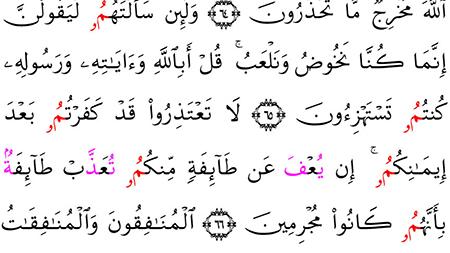 ٱللَّهَ مُخْرِجٌ مَّا تَحْذَرُونَ ٦٤ وَلَئِن سَأَلْتَهُمُۥ لَيَقُولُنَّ
إِنَّمَا كُنَّا نَخُوضُ وَنَلْعَبُۚ قُلْ أَبِٱللَّهِ وَءَايَٰتِهِۦ وَرَسُولِهِۦ
كُنتُمُۥ تَسْتَهْزِءُونَ ٦٥ لَا تَعْتَذِرُوا۟ قَدْ كَفَرْتُمُۥ بَعْدَ
إِيمَٰنِكُمُۥۚ إِن يُعْفَ عَن طَآئِفَةٍ مِّنكُمُۥ تُعَذَّبْ طَآئِفَةُۢ
بِأَنَّهُمُۥ كَانُوا۟ مُجْرِمِينَ ٦٦ ٱلْمُنَٰفِقُونَ وَٱلْمُنَٰفِقَٰتُ